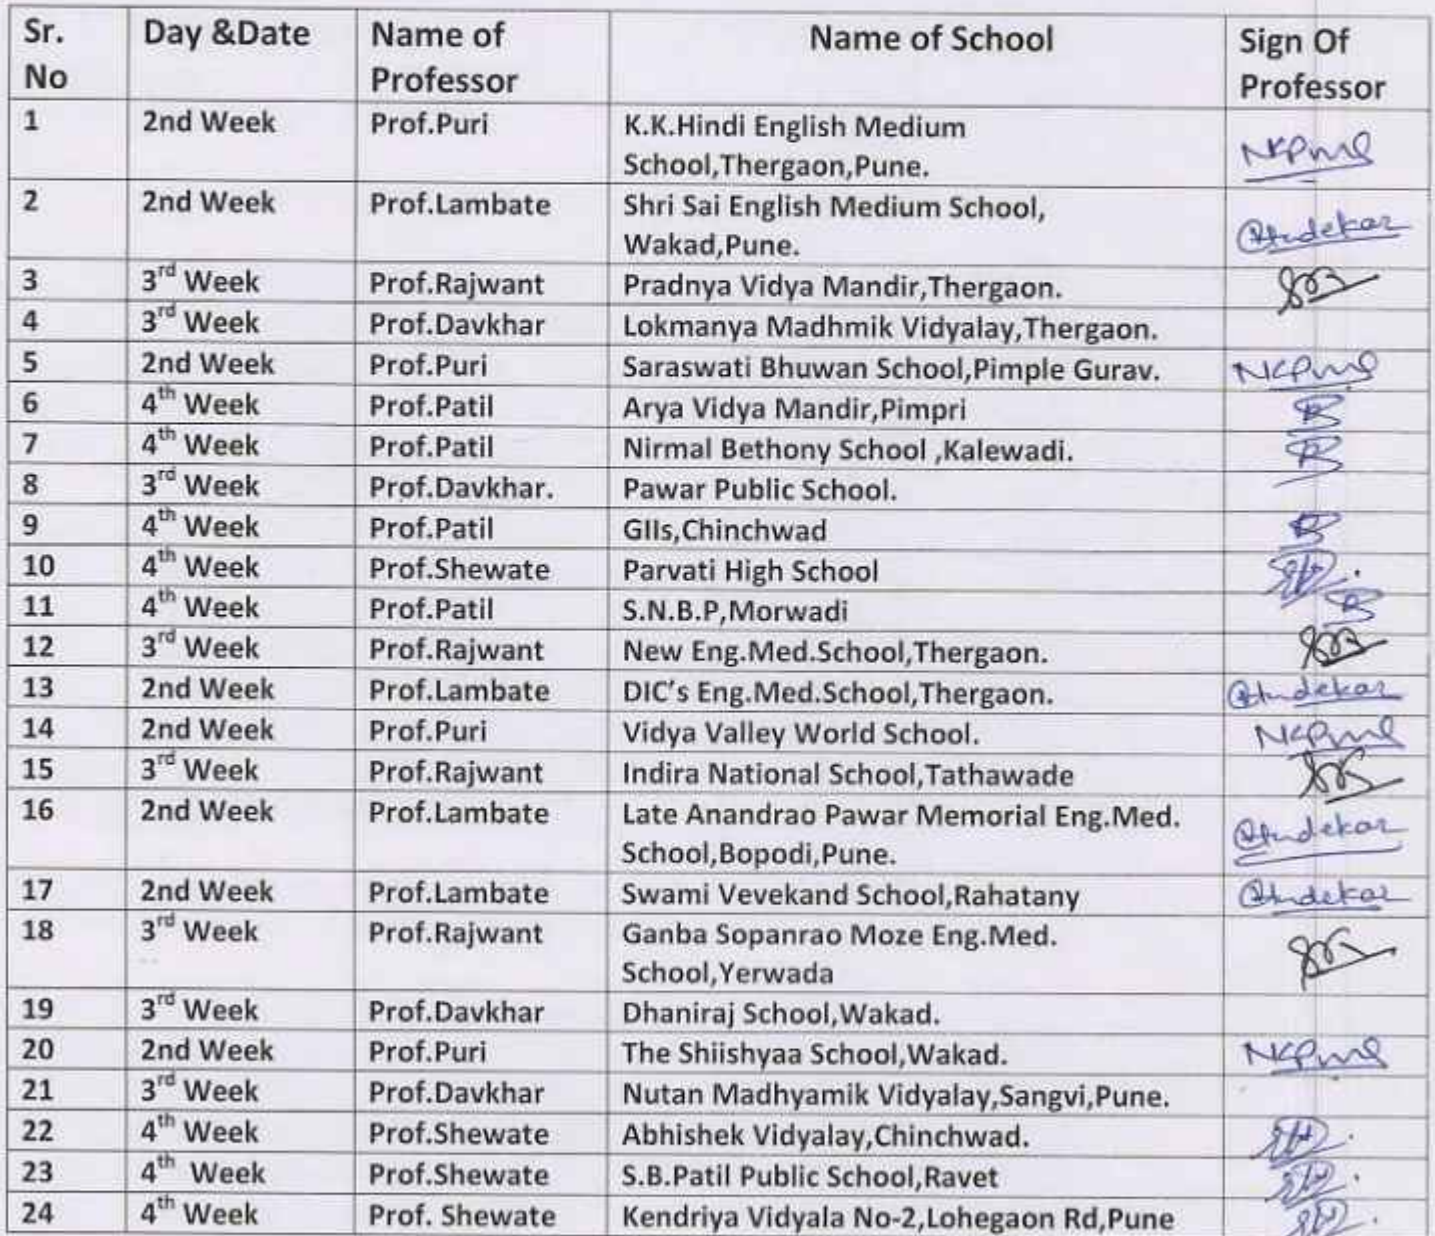 Sr. No Day &Date Name of Professor Name of School Sign Of Professor
1 2nd Week Prof.Puri K.K.Hindi English Medium
School,Thergaon,Pune. NKPuri
2 2nd Week Prof.Lambate Shri Sai English Medium School,
Wakad,Pune.
3 3rd Week Prof.Rajwant Pradnya Vidya Mandir,Thergaon.
4 3rd Week Prof.Davkhar Lokmanya Madhmik Vidyalay,Thergaon.
5 2nd Week Prof.Puri Saraswati Bhuwan School,Pimple Gurav. NKPuri
6 4th Week Prof.Patil Arya Vidya Mandir,Pimpri
7 4th Week Prof.Patil Nirmal Bethony School ,Kalewadi.
8 3rd Week Prof.Davkhar. Pawar Public School.
9 4th Week Prof.Patil GIIs,Chinchwad
10 4th Week Prof.Shewate Parvati High School
11 4th Week Prof.Patil S.N.B.P,Morwadi
12 3rd Week Prof.Rajwant New Eng.Med.School,Thergaon.
13 2nd Week Prof.Lambate DIC's Eng.Med.School,Thergaon.
14 2nd Week Prof.Puri Vidya Valley World School. NKPuri
15 3rd Week Prof.Rajwant Indira National School,Tathawade
16 2nd Week Prof.Lambate Late Anandrao Pawar Memorial Eng.Med.
School,Bopodi,Pune.
17 2nd Week Prof.Lambate Swami Vevekand School,Rahatany
18 3rd Week Prof.Rajwant Ganba Sopanrao Moze Eng.Med.
School,Yerwada
19 3rd Week Prof.Davkhar Dhaniraj School,Wakad.
20 2nd Week Prof.Puri The Shiishyaa School,Wakad. NKPuri
21 3rd Week Prof.Davkhar Nutan Madhyamik Vidyalay,Sangvi,Pune.
22 4th Week Prof.Shewate Abhishek Vidyalay,Chinchwad.
23 4th Week Prof.Shewate S.B.Patil Public School,Ravet
24 4th Week Prof. Shewate Kendriya Vidyala No-2,Lohegaon Rd,Pune